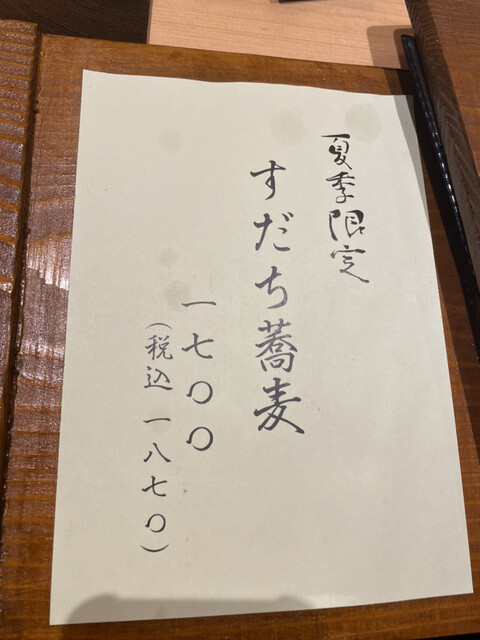 夏季限定
すだち蕎麦
一七〇〇
(税込 一八七〇)